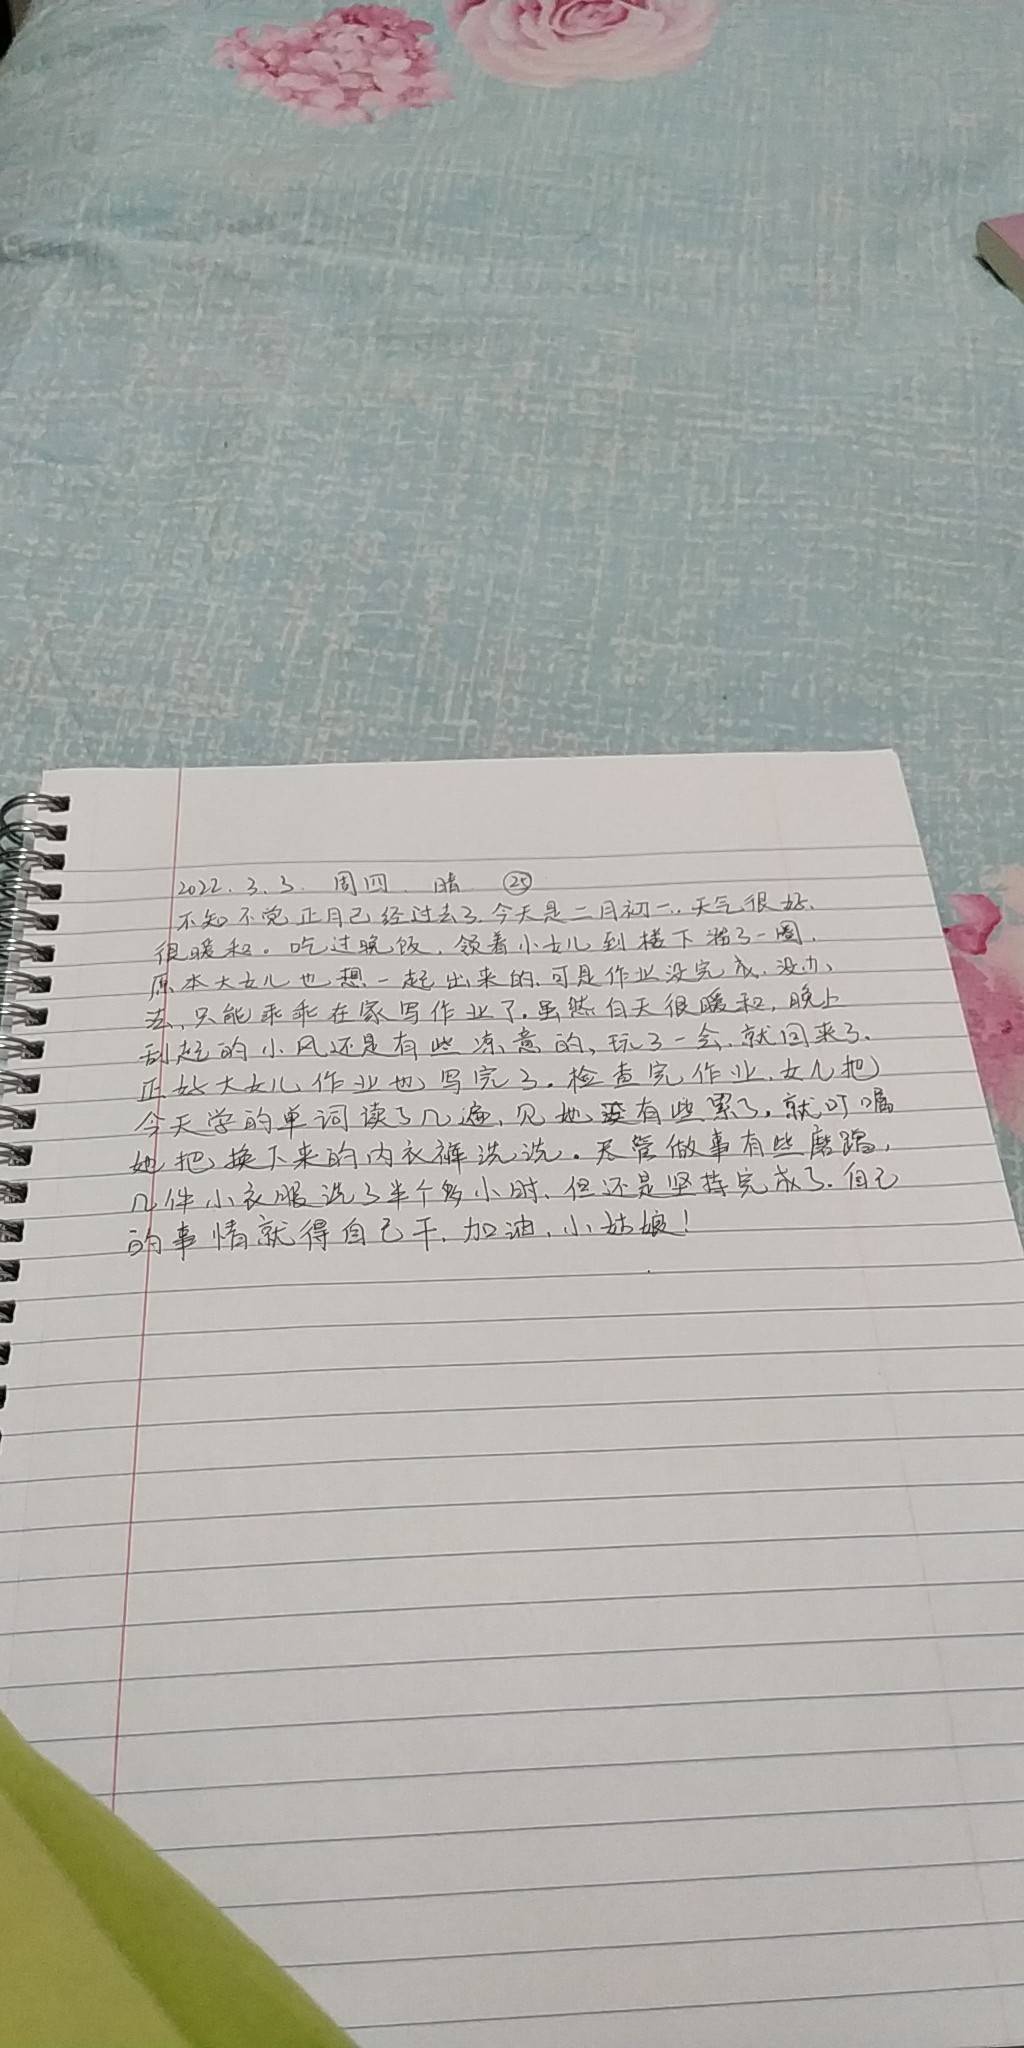 2022.3.3. 周四. 晴 ㉕
不知不觉正月已经过去了.今天是二月初一.天气很好.
很暖和。吃过晚饭,领着小女儿到楼下溜了一圈.
原本大女儿也想一起出来的.可是作业没完成.没办
法,只能乖乖在家写作业了.虽然白天很暖和,晚上
刮起的小风还是有些凉意的,玩了一会.就回来了.
正好大女儿作业也写完了.检查完作业.女儿把
今天学的单词读了几遍,见她有些累了,就叮嘱
她把换下来的内衣裤洗洗。尽管做事有些磨蹭,
几件小衣服洗了半个多小时.但还是坚持完成了.自己
的事情就得自己干.加油,小姑娘!